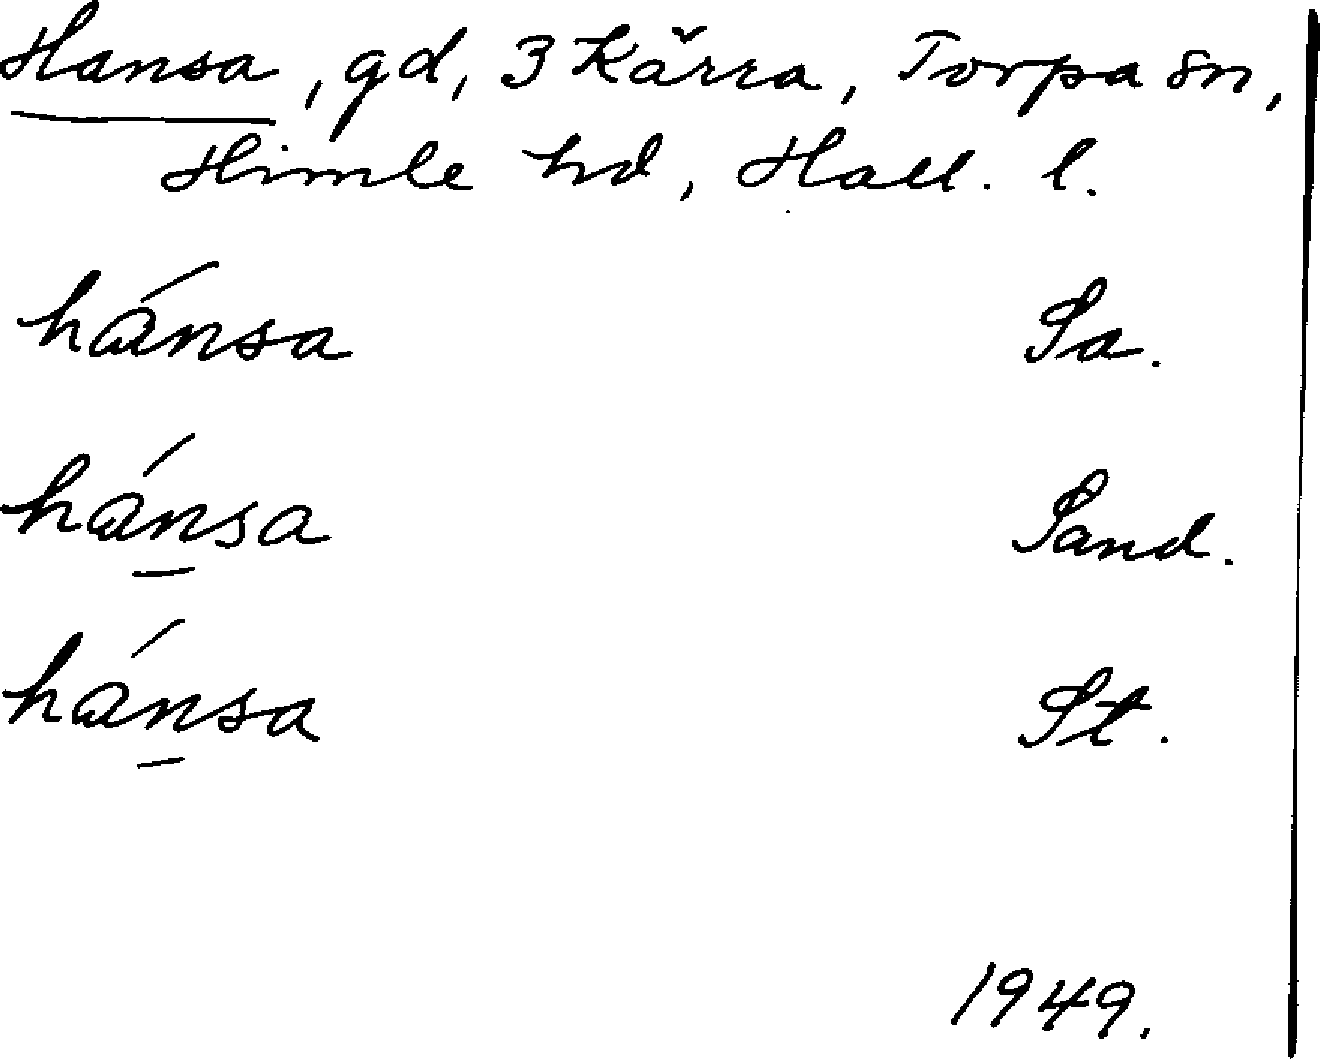 Hansa, gd, 3 Kärra, Torpa sn,
Himle hd, Hall. l.
hánsa Sa.
hánsa Sand.
hánsa St.
1949.